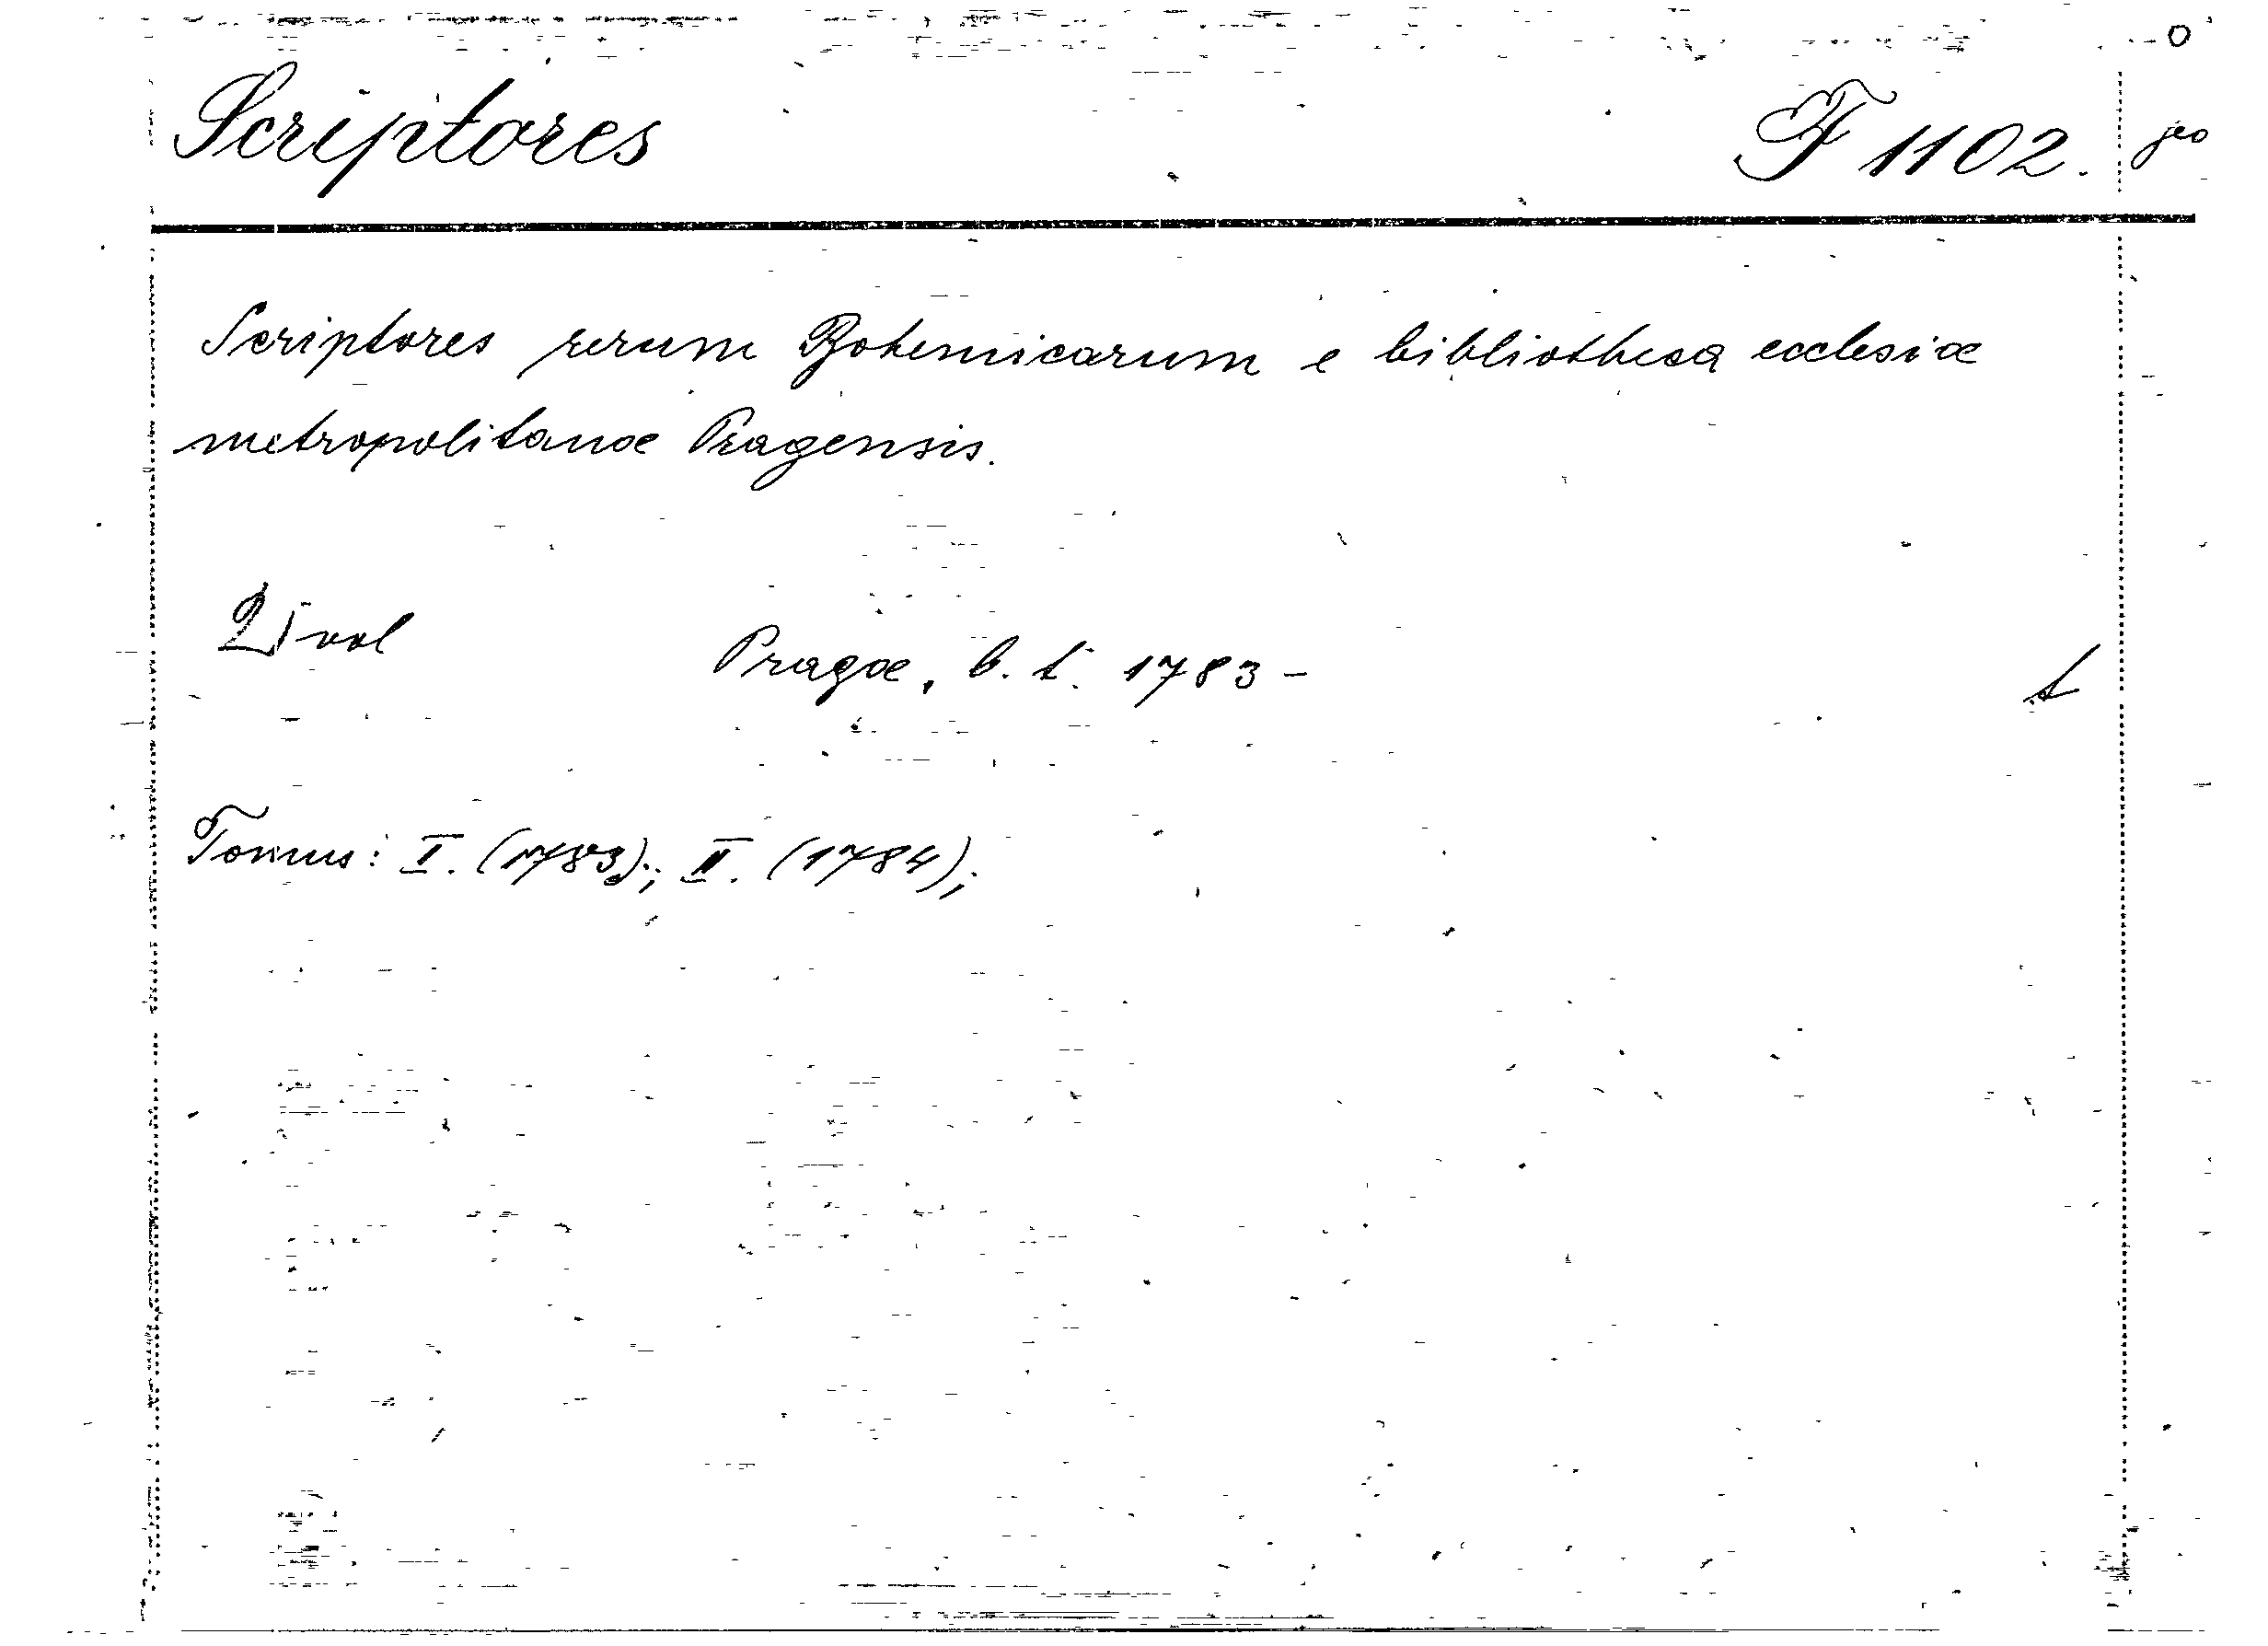 Scriptores F 1102. jeo
Scriptores rerum Bohemicarum e bibliotheca ecclesiæ
metropolitanæ Pragensis.
2 vol
Pragæ, b. t. 1783 -
Tomus: I. (1783); II. (1784);